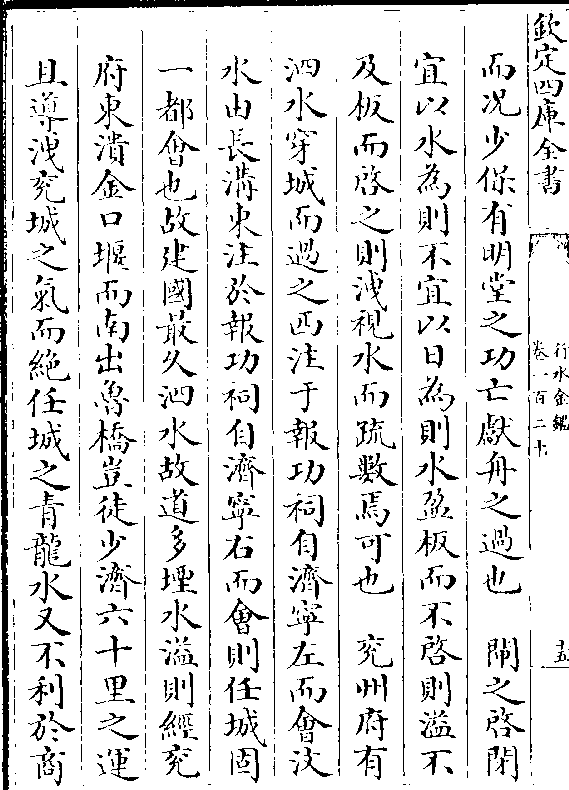 欽定四庫全書
行水金鑑
卷一百二十
十五
而况少保有明堂之功亡獻舟之過也　閘之啓閉
宜以水為則不宜以日為則水盈板而不啓則溢不
及板而啓之則洩視水而疏數焉可也　兖州府有
泗水穿城而過之西注于報功祠自濟寧左而會汶
水由長溝東注於報功祠自濟寧右而會則任城固
一都會也故建國最久泗水故道多堙水溢則經兖
府東潰金口堰而南出魯橋豈徒少濟六十里之運
且導洩兖城之氣而絶任城之青龍水又不利於商